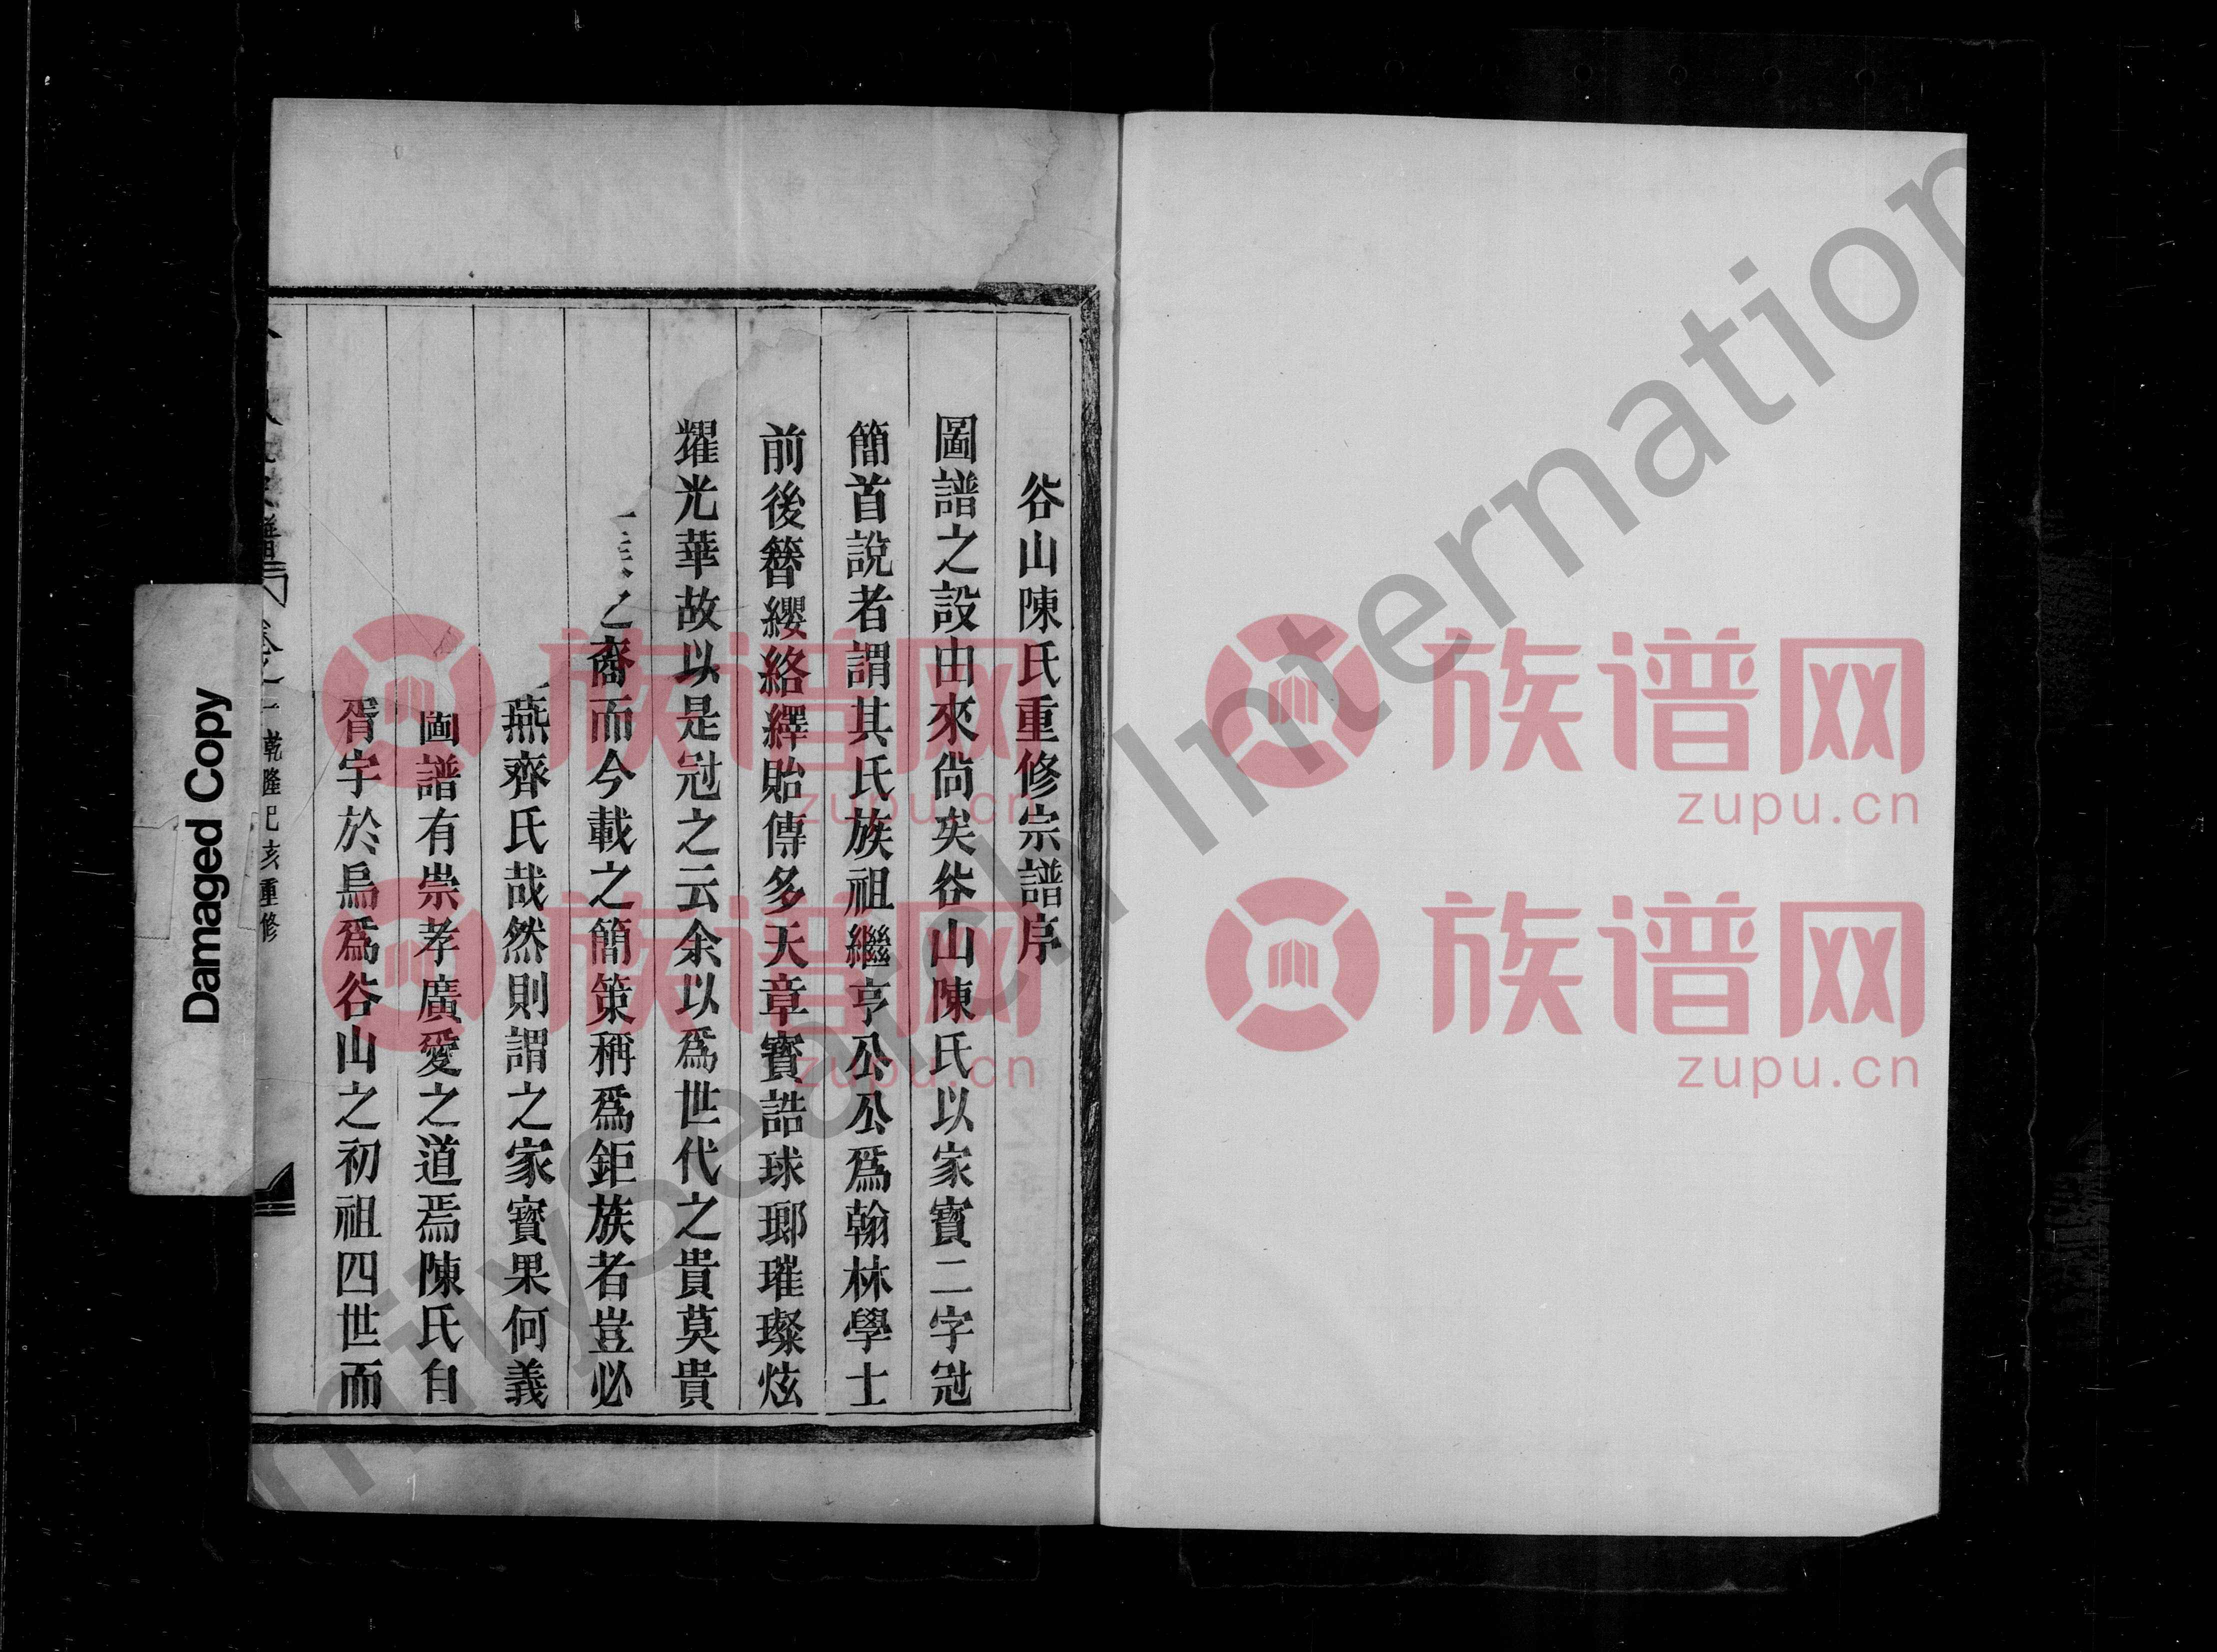 谷山陳氏重修宗譜序
圖譜之設由來尙矣谷山陳氏以家寳二字冠
簡首說者謂其氏族祖繼亨公公爲翰林學士
前後簪纓絡繹貽傳多天章寳誥球瑯璀璨炫
耀光華故以是冠之云余以爲世代之貴莫貴
之裔而今載之簡策稱爲鉅族者豈必
燕齊氏哉然則謂之家寳果何義
圖譜有崇孝廣愛之道焉陳氏自
胥宇於烏爲谷山之初祖四世而
譜 卷之一 乾隆己亥重修
Damaged Copy
族谱网
zupu.cn
族谱网
zupu.cn
族谱网
zupu.cn
族谱网
zupu.cn
milySearch Internation